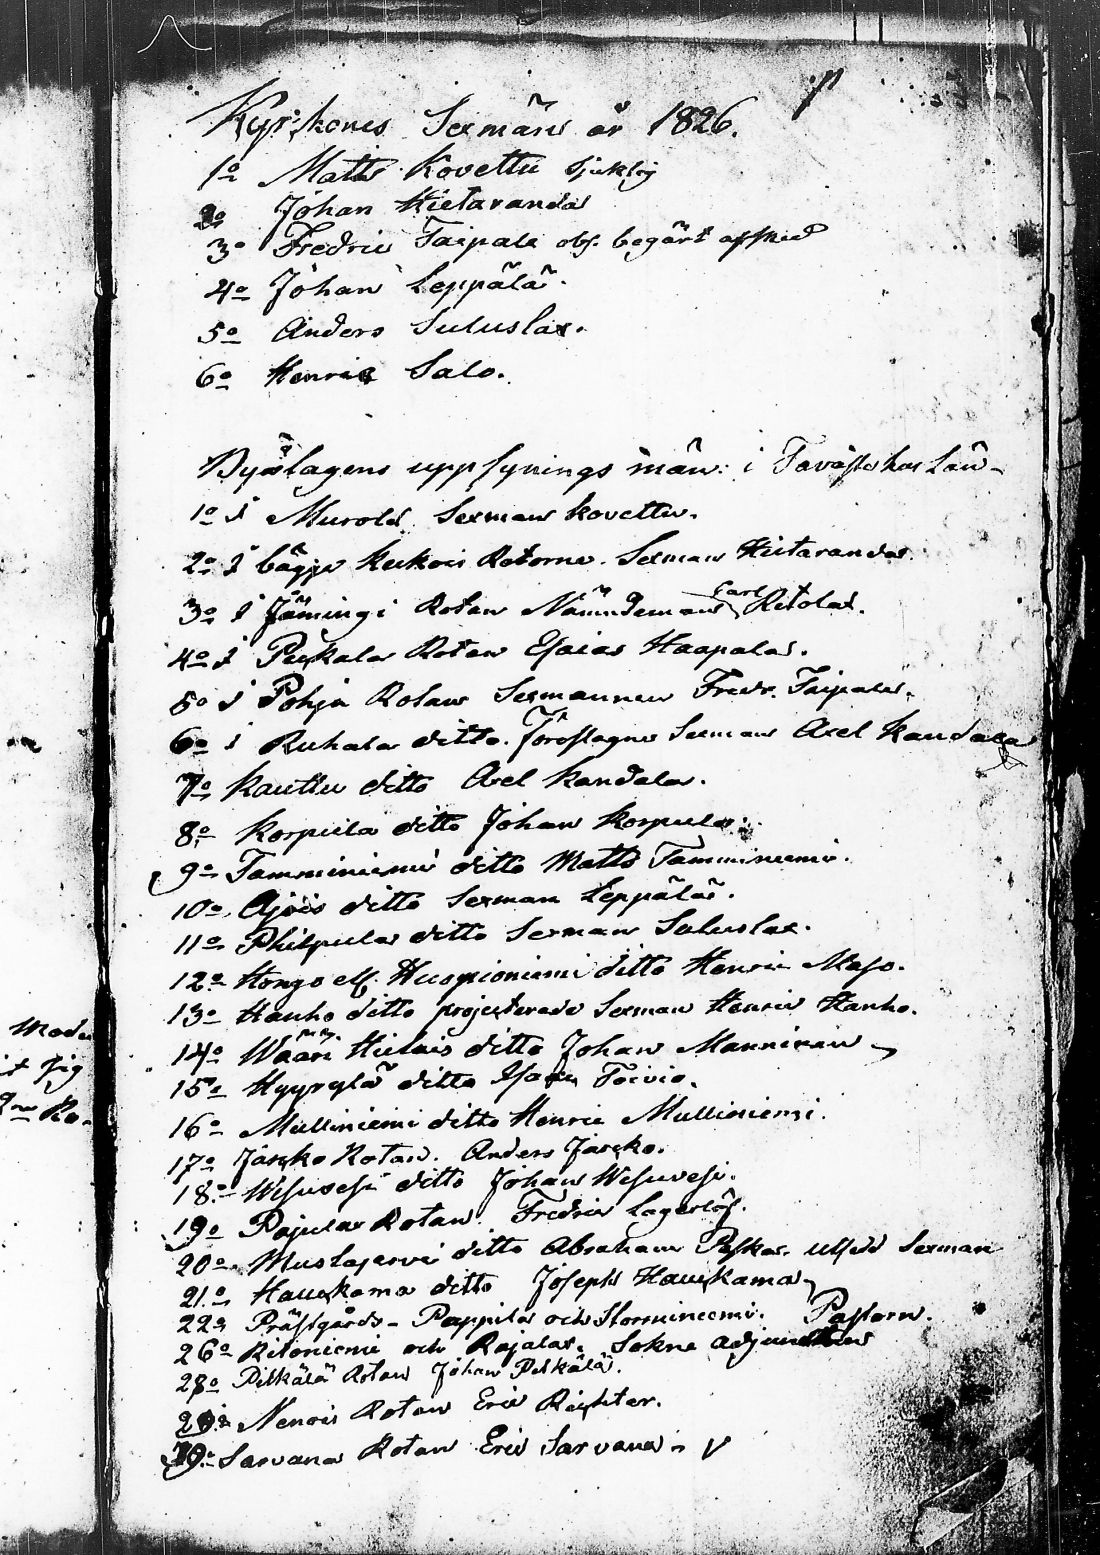 Kyrkones Sexmän år 1826.
1o Matts Kovettu sjuklig
2o Johan Hietaranda
3o Fredric Taipale obs. begärt afsked
4o Johan Leppälä.
5o Anders Suluslax.
6o Henric Salo.
Byalagens uppsynings män: i Tavastehus Län
1o I Murola Sexman Kovettu.
2o I bägge Keikois Rotorne. Sexman Hietaranda.
3o I Jämingi Rotan Nämndeman Carl Ritola.
4o I Peckala Rotan Esaias Haapala.
5o I Pohja Rotan Sexmannen Fredr. Taipale.
6o I Ruhala ditto. Föreslagne Sexman Axel Kandala
7o Kauttu ditto Axel Kandala.
8o Korpula ditto Johan Korpula.
9o Tamminiemi ditto Matts Tamminiemi.
10o Ajois ditto Sexman Leppälä.
11o Philpula ditto Sexman Suluslax.
12o Hongo ell. Huopioniemi ditto Henric Maso.
13o Hanho ditto projecterade Sexman Henric Hanho.
14o Wääri Hiclais ditto Johan Manninen
15o Hyyrylä ditto Isaac Toivio.
16o Mulliniemi ditto Henric Mulliniemi.
17o Jäsko Rotan. Anders Jäsko.
18o Wesuvesi ditto Johan Wesuvesi.
19o Pajula Rotan Fredric Lagerlöf.
20o Mustajervi ditto Abraham Paska. utsedd Sexman
21o Hauckama ditto Joseph Hauckama
22o Prästgårds- Pappila och Storminiemi. Pastorn.
26o Ritoniemi och Rajala. Sokne adjuncten
28o Pelkälä Rotan Johan Pelkälä.
29o Nenois Rotan Eric Richter.
30o Sarvana Rotan Eric Sarvana